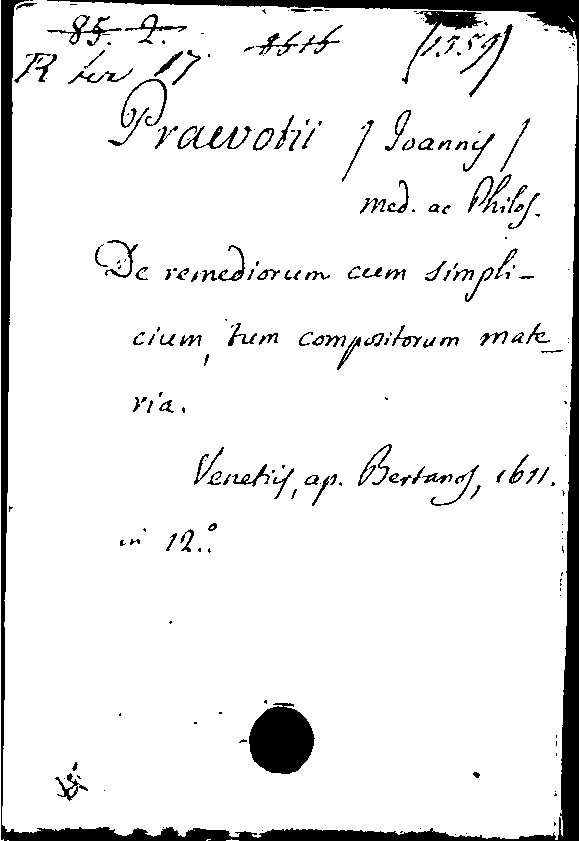 85. 2. 8616 (1559)
R ter 17.
Praevotii / Ioannis /
med. ac Philos.
De remediorum cum simpli-
cium, tum compositorum mate_
ria.
Venetiis, ap. Bertanos, 1611.
in 12.º